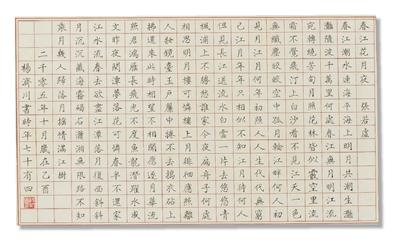 春江花月夜 張若虛
春江潮水連海平海上明月共潮生灩
灩隨波千萬里何處春江無月明江流
宛轉繞芳甸月照花林皆似霰空里流
霜不覺飛汀上白沙看不見江天一色
無纖塵皎皎空中孤月輪江畔何人初
見月江月何年初照人人生代代無窮
已江月年年只相似不知江月待何人
但見長江送流水白雲一片去悠悠青
楓浦上不勝愁誰家今夜扁舟子何處
相思明月樓可憐樓上月徘徊應照離
人妝鏡臺玉戶簾中捲不去搗衣砧上
拂還來此時相望不相聞願逐月華流
照君鴻雁長飛光不度魚龍潛躍水成
文昨夜閒潭夢落花可憐春半不還家
江水流春去欲盡江潭落月復西斜斜
月沉沉藏海霧碣石瀟湘無限路不知
乘月幾人歸落月搖情滿江樹
二千零五年十月歲在乙酉
楊濟川書時年七十有四